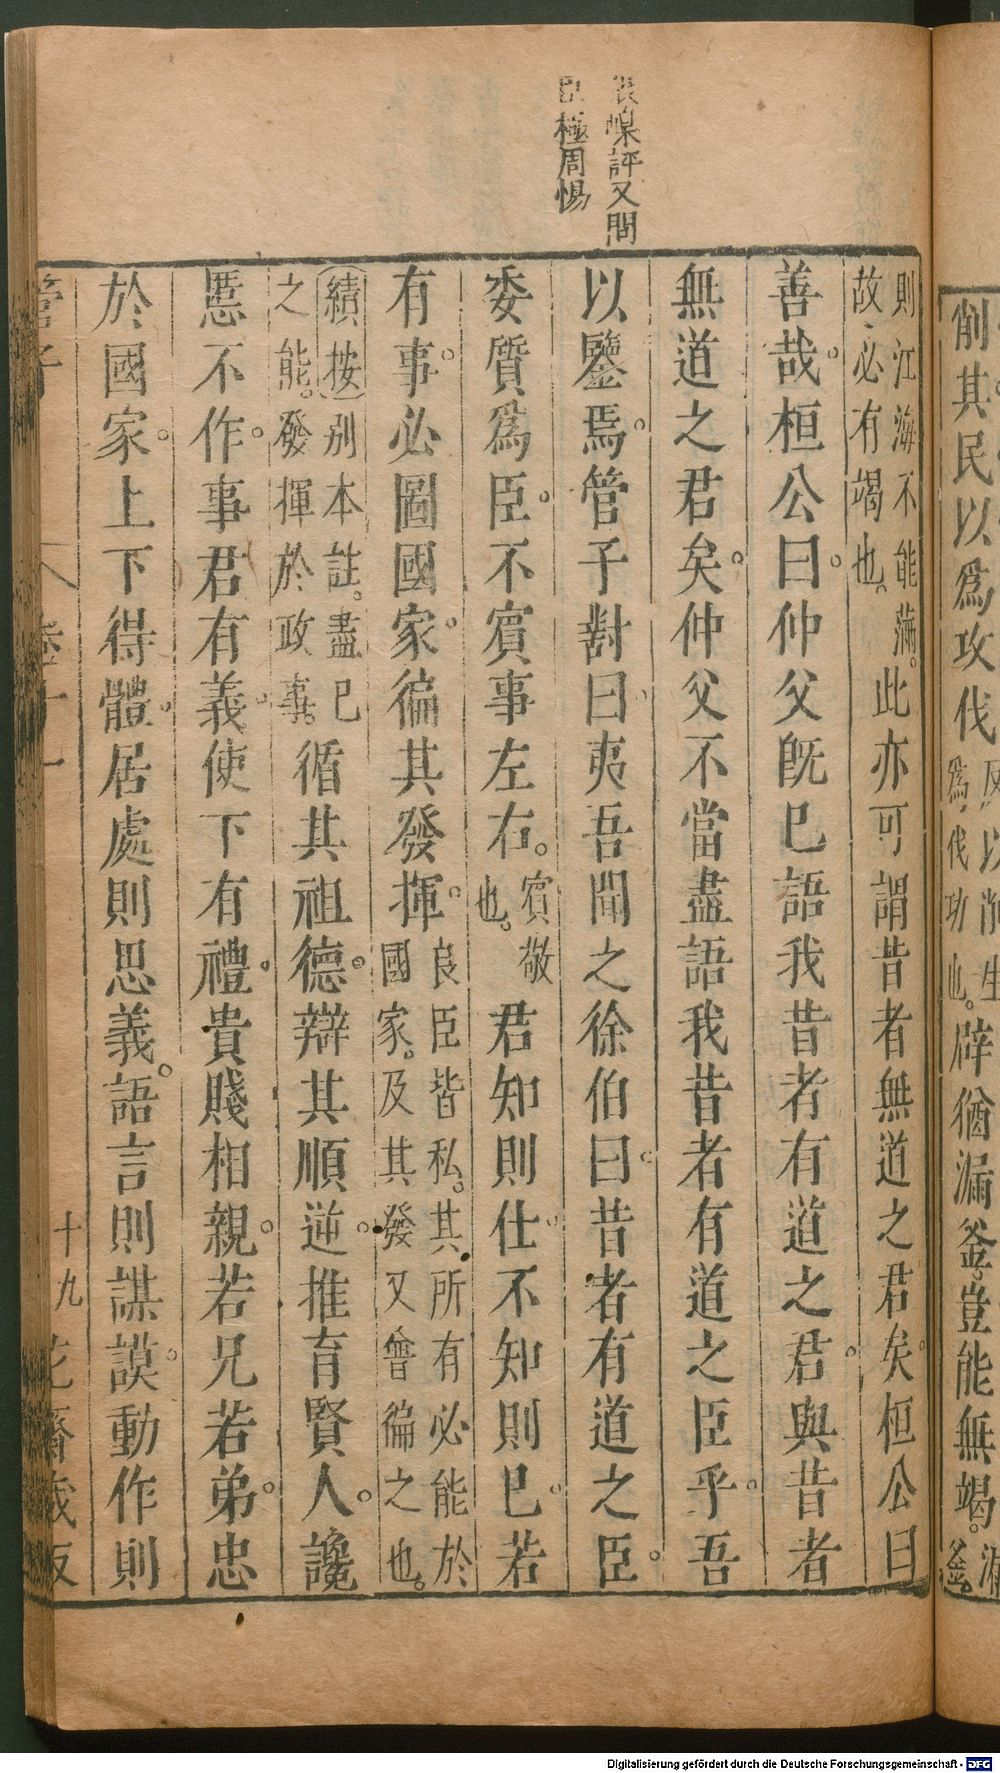 削其民以為攻伐
為伐功也。
辟猶漏釜豈能無竭。
評又問
臣極周惕
則江海不能滿。
故必有竭也。
此亦可謂昔者無道之君矣桓公曰
善哉桓公曰仲父既已語我昔者有道之君與昔者
無道之君矣仲父不當盡語我昔者有道之臣乎吾
以鑒焉管子對曰夷吾聞之徐伯曰昔者有道之臣
委質為臣不賓事左右。
賓敬
也。
君知則仕不知則已若
有事必圖國家徧其發揮
良臣皆私。其所有必能於
國家。及其發又會徧之也。
續按別本註。盡已
之能。發揮於政事。
循其祖德辯其順逆推育賢人讒
慝不作事君有義使下有禮貴賤相親若兄若弟忠
於國家上下得體居處則思義。語言則謀謨動作則
管子
卷十一
十九
花齋藏板
Digitalisierung gefördert durch die Deutsche Forschungsgemeinschaft - DFG